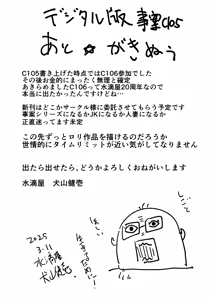 デジタル版 事案C105
あと☆がきぬぅ
C105書き上げた時点ではC106参加でした
その後お金的にまったく無理と確定
あきらめましたC106って水滴屋20周年なので
本当に出たかったんですけどね…
新刊はどこかサークル様に委託させてもらう予定です
事案シリーズになるかJKになるか人妻になるか
正直迷ってます未定
この先ずっとロリ作品を描けるのだろうか
世情的にタイムリミットが近い気がしてなりません
出たら出せたら、どうかよろしくおねがいします
水滴屋 犬山健壱
しごと
ほしい
生きるために!
2025
3.11
水滴屋
犬山健壱